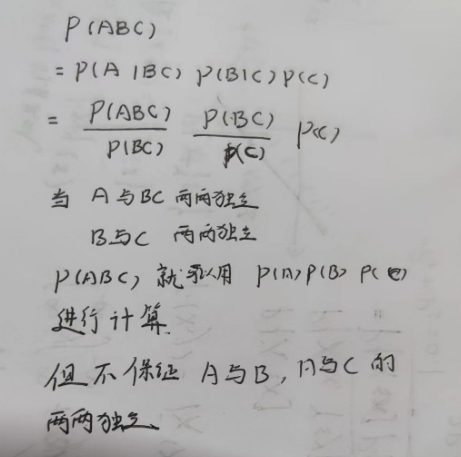 P(ABC)
= P(A|BC) P(B|C) P(C)
= P(ABC)/P(BC) P(BC)/P(C) P(C)
当 A与BC 两两独立
B与C 两两独立
P(ABC) 就可以用 P(A) P(B) P(C)
进行计算
但不保证 A与B, A与C 的
两两独立、